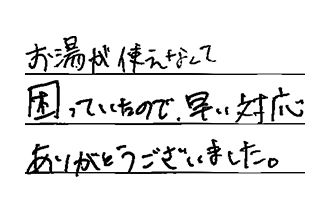 お湯が使えなくて
困っていたので、早い対応
ありがとうございました。